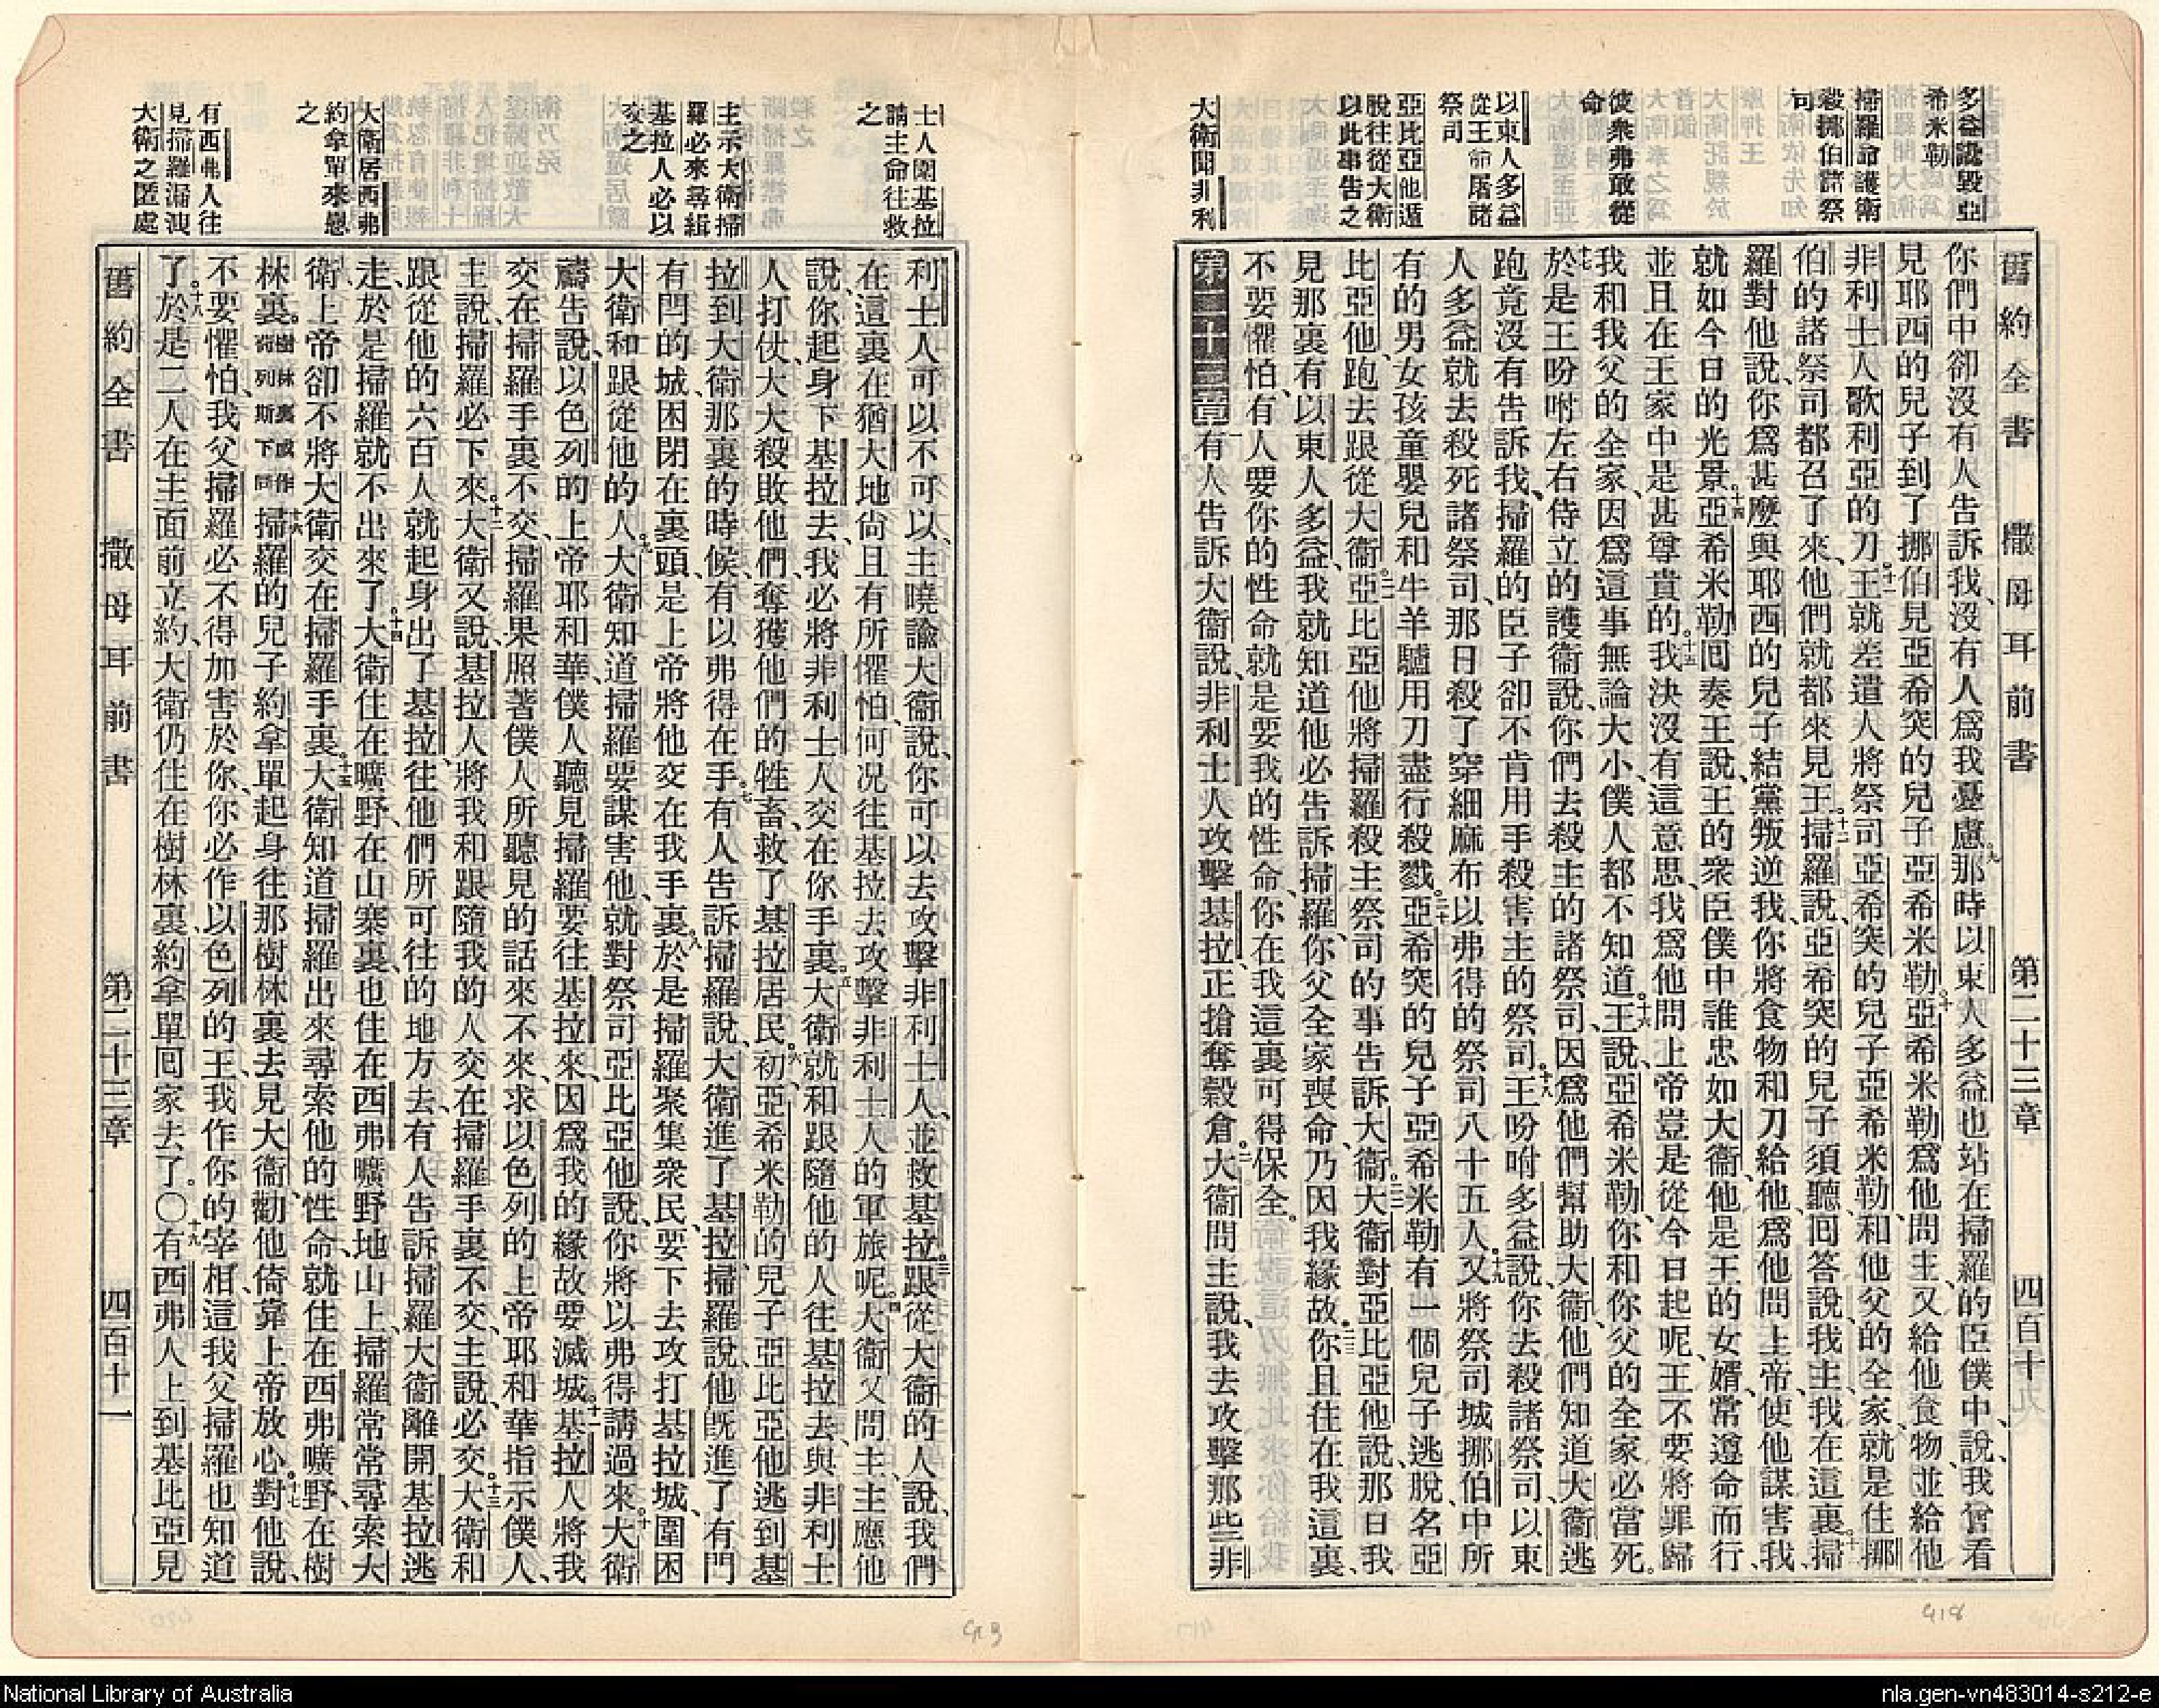 舊約全書 撒母耳前書 第二十三章 四百十
多益讒毀亞
希米勒
掃羅命護衛
殺挪伯諸祭
司
彼衆弗敢從
命
以東人多益
從王命屠諸
祭司
亞比亞他遁
脫往從大衛
以此事告之
大衛聞非利
你們中卻沒有人告訴我、沒有人爲我憂慮。九那時以東人多益也站在掃羅的臣僕中、說、我曾看
見耶西的兒子到了挪伯見亞希突的兒子亞希米勒。十亞希米勒爲他問主、又給他食物、並給他
非利士人歌利亞的刀。十一王就差遣人將祭司亞希突的兒子亞希米勒、和他父的全家、就是住挪
伯的諸祭司都召了來、他們就都來見王。十二掃羅說、亞希突的兒子須聽、回答說、我主、我在這裏。十三掃
羅對他說、你爲甚麼與耶西的兒子結黨叛逆我、你將食物和刀給他、爲他問上帝、使他謀害我、
就如今日的光景。十四亞希米勒回奏王說、王的衆臣僕中誰忠如大衛、他是王的女婿、常遵命而行、
並且在王家中是甚尊貴的。十五我決沒有這意思、我爲他問上帝豈是從今日起呢、王不要將罪歸
我和我父的全家、因爲這事無論大小、僕人都不知道。十六王說、亞希米勒、你和你父的全家必當死。
十七於是王吩咐左右侍立的護衛說、你們去殺主的諸祭司、因爲他們幫助大衛、他們知道大衛逃
跑、竟沒有告訴我、掃羅的臣子卻不肯用手殺害主的祭司。十八王吩咐多益說、你去殺諸祭司、以東
人多益就去殺死諸祭司、那日殺了穿細麻布以弗得的祭司八十五人。十九又將祭司城挪伯中所
有的男女孩童嬰兒和牛羊驢用刀盡行殺戮。二十亞希突的兒子亞希米勒有一個兒子逃脫、名亞
比亞他、跑去跟從大衛。二一亞比亞他將掃羅殺主祭司的事告訴大衛。二二大衛對亞比亞他說、那日我
見那裏有以東人多益、我就知道他必告訴掃羅、你父全家喪命、乃因我緣故。二三你且住在我這裏、
不要懼怕、有人要你的性命、就是要我的性命、你在我這裏可得保全。
第二十三章 一有人告訴大衛說、非利士人攻擊基拉、正搶奪穀倉。二大衛問主說、我去攻擊那些非
士人圍基拉
請主命往救
之
主示大衛掃
羅必來尋緝
基拉人必以
交之
大衛居西弗
約拿單來慰
之
有西弗人往
見掃羅漏洩
大衛之匿處
利士人可以不可以、主曉諭大衛說、你可以去攻擊非利士人、並救基拉。三跟從大衛的人說、我們
在這裏在猶大地尚且有所懼怕、何况往基拉去攻擊非利士人的軍旅呢。四大衛又問主、主應他
說、你起身下基拉去、我必將非利士人交在你手裏。五大衛就和跟隨他的人往基拉去、與非利士
人打仗、大大殺敗他們、奪獲他們的牲畜、救了基拉居民。六初、亞希米勒的兒子亞比亞他逃到基
拉到大衛那裏的時候、有以弗得在手。七有人告訴掃羅說、大衛進了基拉、掃羅說、他旣進了有門
有閂的城、困閉在裏頭、是上帝將他交在我手裏。八於是掃羅聚集衆民、要下去攻打基拉城、圍困
大衛和跟從他的人。九大衛知道掃羅要謀害他、就對祭司亞比亞他說、你將以弗得講過來。十大衛
禱告說、以色列的上帝耶和華、僕人聽見掃羅要往基拉來、因爲我的緣故要滅城。十一基拉人將我
交在掃羅手裏不交、掃羅果照著僕人所聽見的話來不來、求以色列的上帝耶和華指示僕人、
主說、掃羅必下來。十二大衛又說、基拉人將我和跟隨我的人交在掃羅手裏不交、主說、必交。十三大衛和
跟從他的六百人就起身出了基拉、往他們所可往的地方去、有人告訴掃羅、大衛離開基拉逃
走、於是掃羅就不出來了。十四大衛住在曠野、在山寨裏、也住在西弗曠野地山上、掃羅常常尋索大
衛、上帝卻不將大衛交在掃羅手裏。十五大衛知道掃羅出來尋索他的性命、就住在西弗曠野、在樹
林裏。樹林裏或作荷列斯下同十六掃羅的兒子約拿單起身往那樹林裏去見大衛、勸他倚靠上帝放心。十七對他說、
不要懼怕、我父掃羅必不得加害於你、你必作以色列的王、我作你的宰相、這我父掃羅也知道
了。十八於是二人在主面前立約、大衛仍住在樹林裏、約拿單回家去了。〇十九有西弗人上到基比亞見
舊約全書 撒母耳前書 第二十三章 四百十一
418
National Library of Australia
nla.gen-vn483014-s212-e